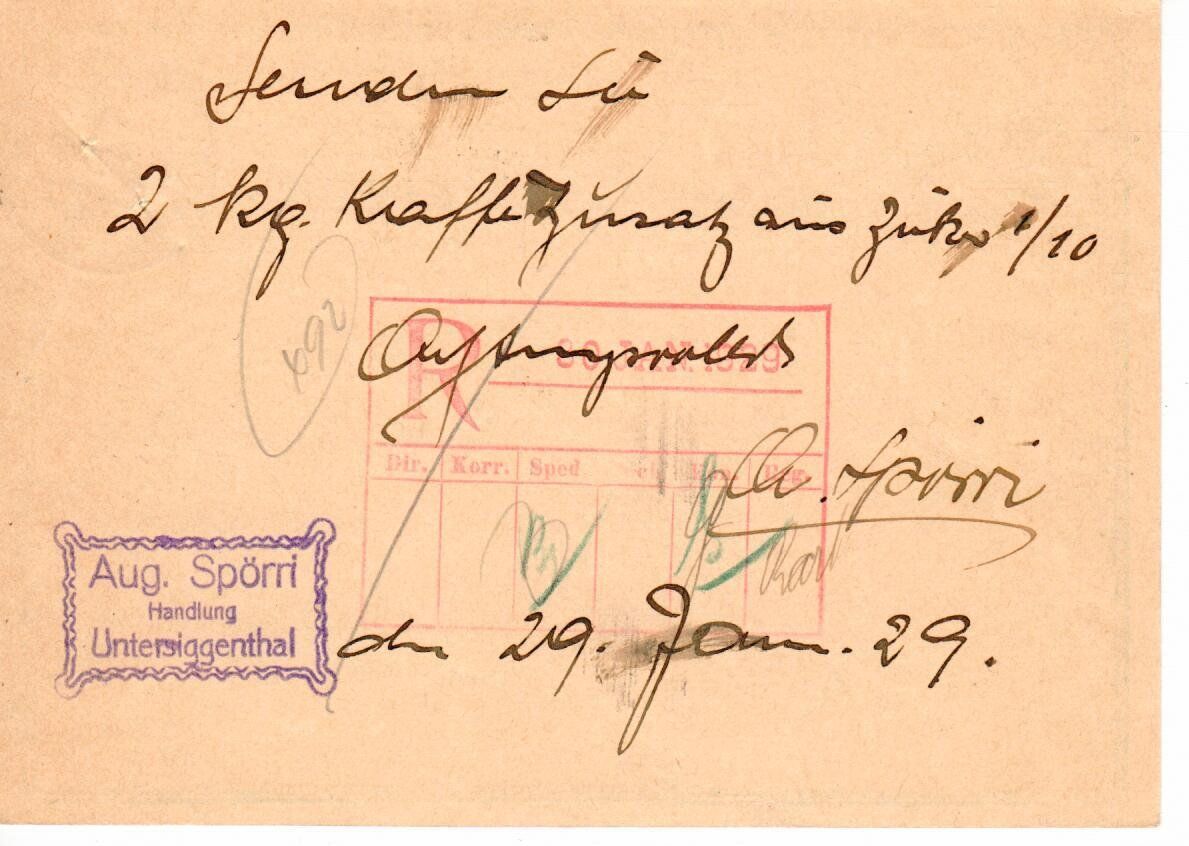 Senden Sie
2 kg. Kaffe Zusatz aus Zuker 1/10
Achtungsvollst
R 30 JAN 1929
A. Spörri
Dir. Korr. Sped Reg.
492
Karl
Aug. Spörri
Handlung
Untersiggenthal
den 29. Jan. 29.